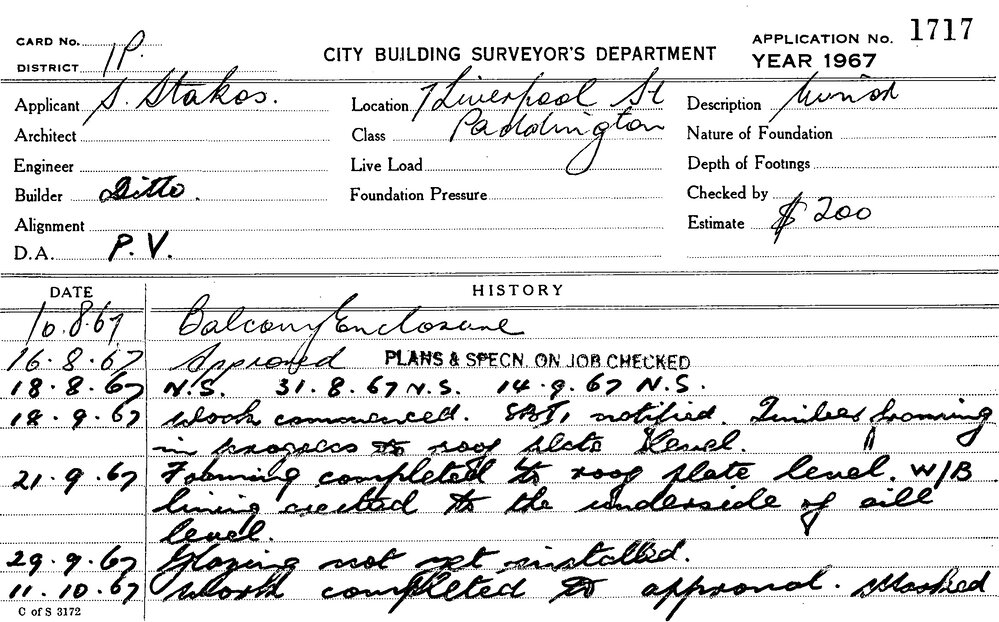 CARD No.
APPLICATION No. 1717
CITY BUILDING SURVEYOR'S DEPARTMENT
DISTRICT 1P.
YEAR 1967
Applicant S. Stakos.
Location 7 Liverpool St
Description Minor
Architect
Class Paddington
Nature of Foundation
Engineer
Live Load
Depth of Footings
Builder Ditto.
Foundation Pressure
Checked by
Alignment
Estimate $200
D.A. P.V.
DATE HISTORY
10.8.67 Balcony Enclosure
16.8.67 Approved PLANS & SPECN. ON JOB CHECKED
18.8.67 N.S. 31.8.67 N.S. 14.9.67 N.S.
18.9.67 Work commenced. notified. Timber framing
in progress to roof plate level.
21.9.67 Framing completed to roof plate level. W/B
lining erected to the underside of sill
level.
29.9.67 Glazing not yet installed.
11.10.67 Work completed to approval. Marked
C of S 3172